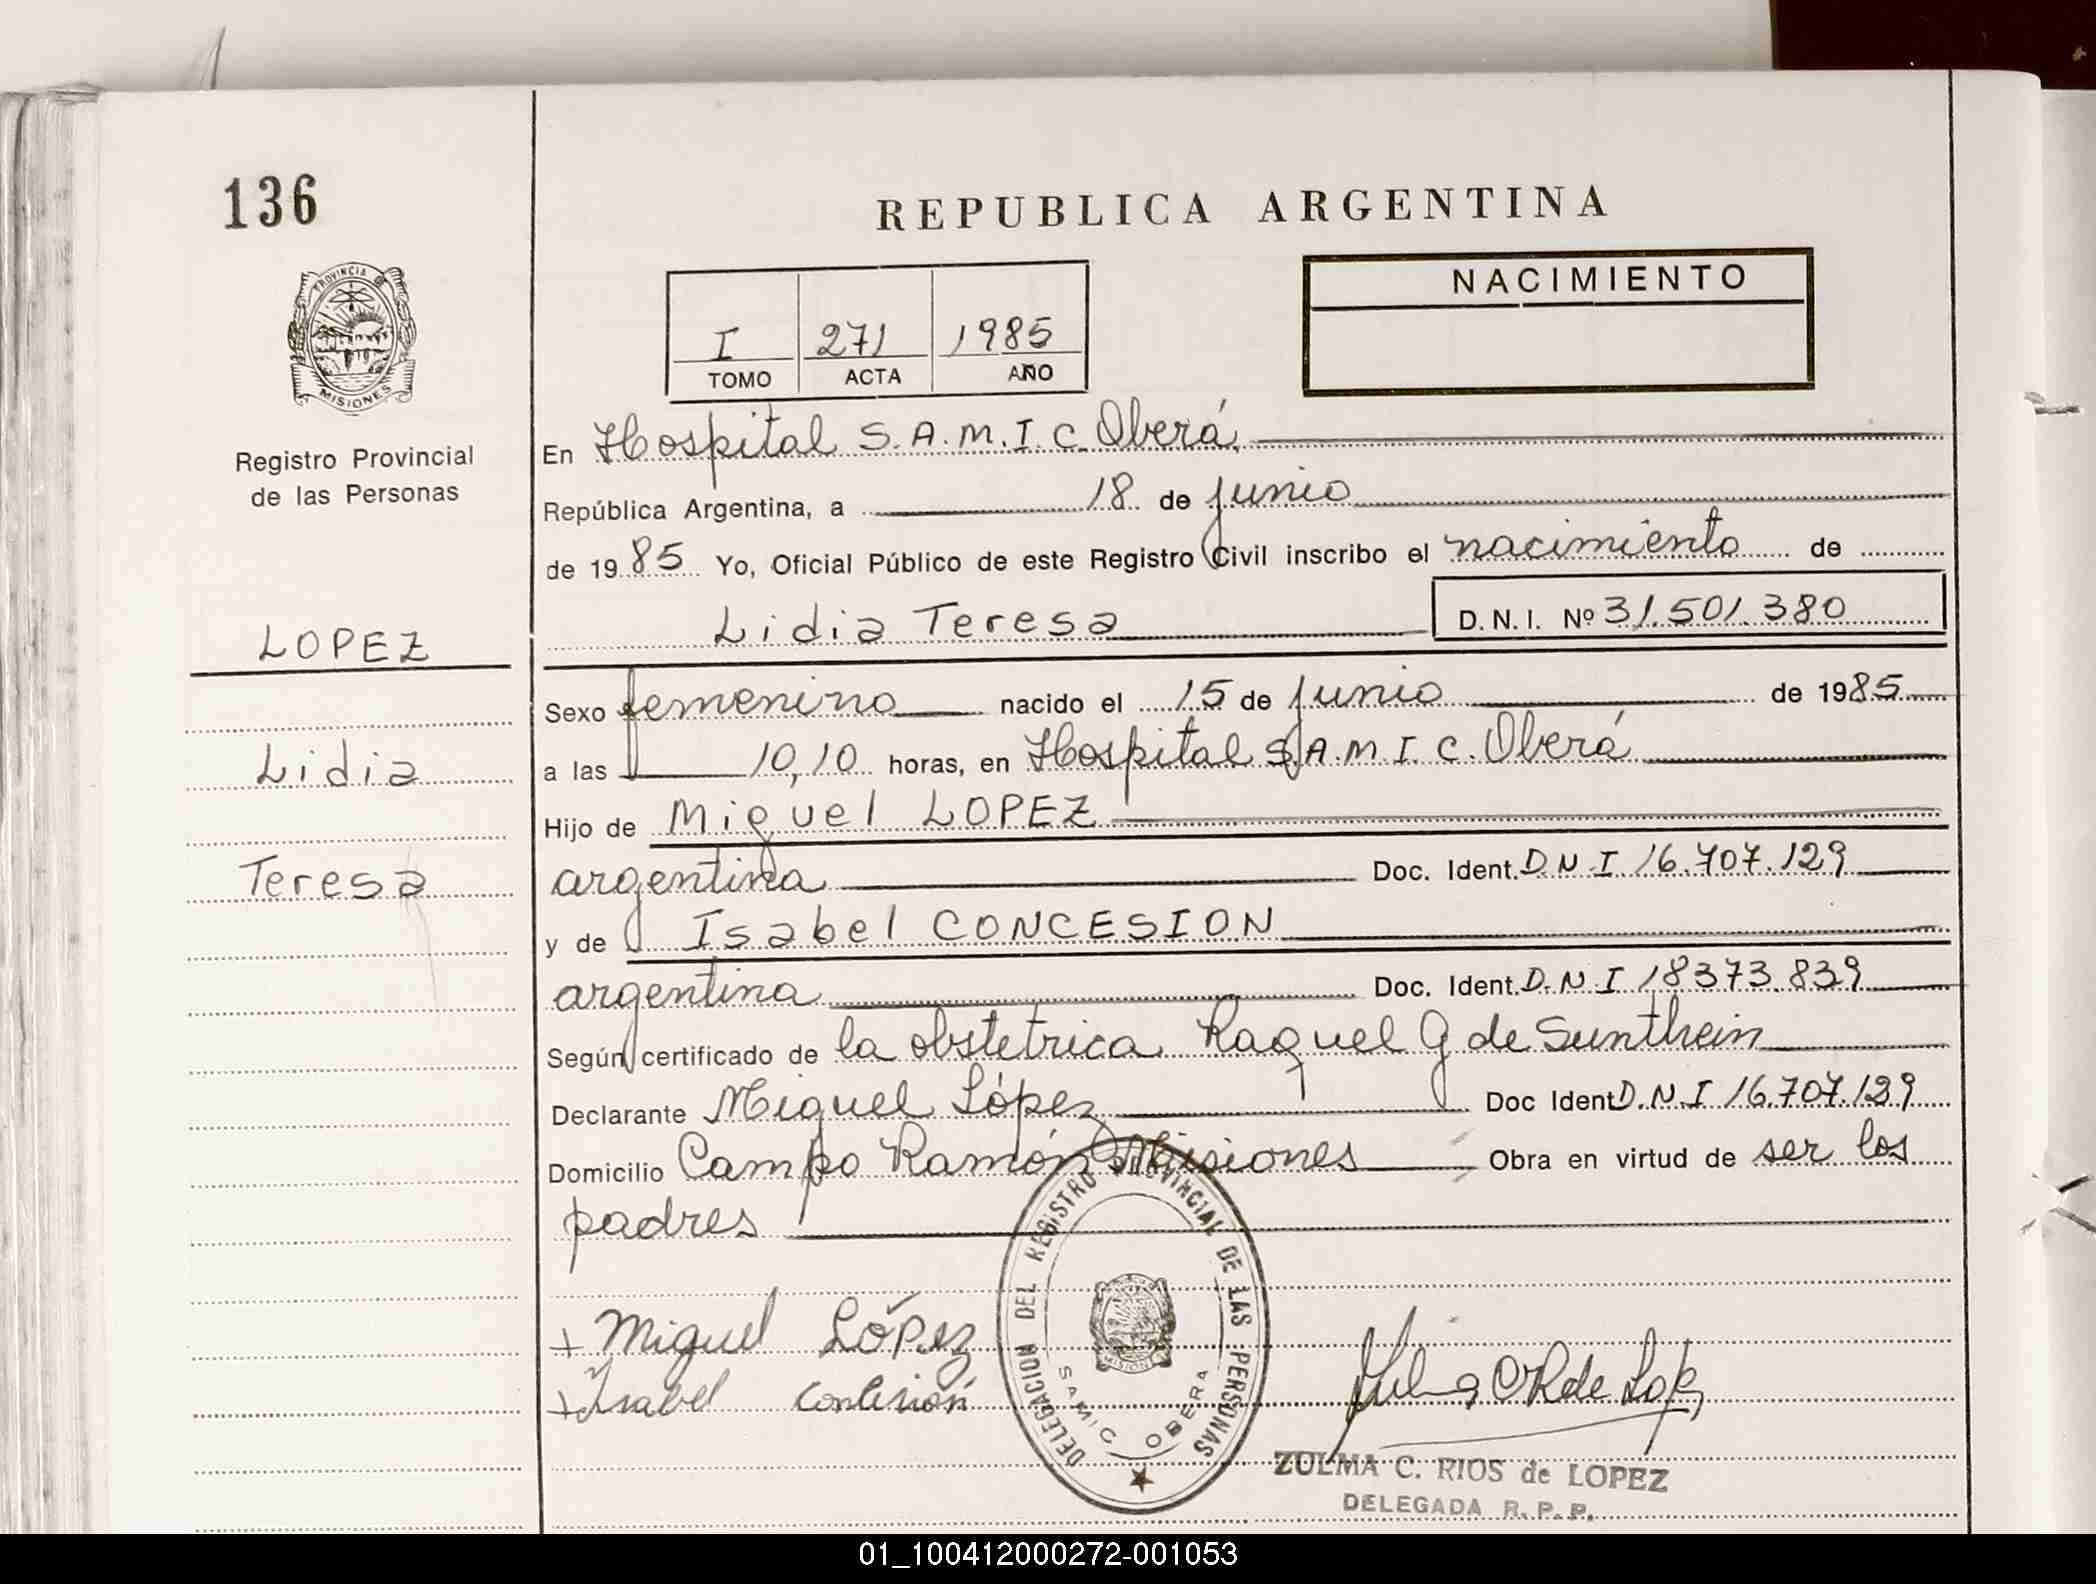 136
REPUBLICA ARGENTINA
PROVINCIA DE
MISIONES
NACIMIENTO
I 271 1985
TOMO ACTA AÑO
Registro Provincial
de las Personas
En Hospital S.A.M.I.C. Oberá
República Argentina, a 18 de junio
de 1985 Yo, Oficial Público de este Registro Civil inscribo el nacimiento de
Lidia Teresa D.N.I. Nº 31.501.380
LOPEZ
Lidia
Teresa
Sexo femenino nacido el 15 de junio de 1985
a las 10,10 horas, en Hospital S.A.M.I.C. Oberá
Hijo de Miguel LOPEZ
argentina Doc. Ident. D.N.I 16.707.129
y de Isabel CONCESION
argentina Doc. Ident. D.N.I 18373.839
Según certificado de la obstetrica Raquel G de Sunthein
Declarante Miguel López Doc Ident D.N.I 16.707.129
Domicilio Campo Ramón Misiones Obra en virtud de ser los
padres
Miguel López
Isabel Concesión
DELEGACION DEL REGISTRO PROVINCIAL DE LAS PERSONAS
MISIONES
SAMIC OBERA
ZULMA C. RIOS de LOPEZ
DELEGADA R.P.P.
01_100412000272-001053